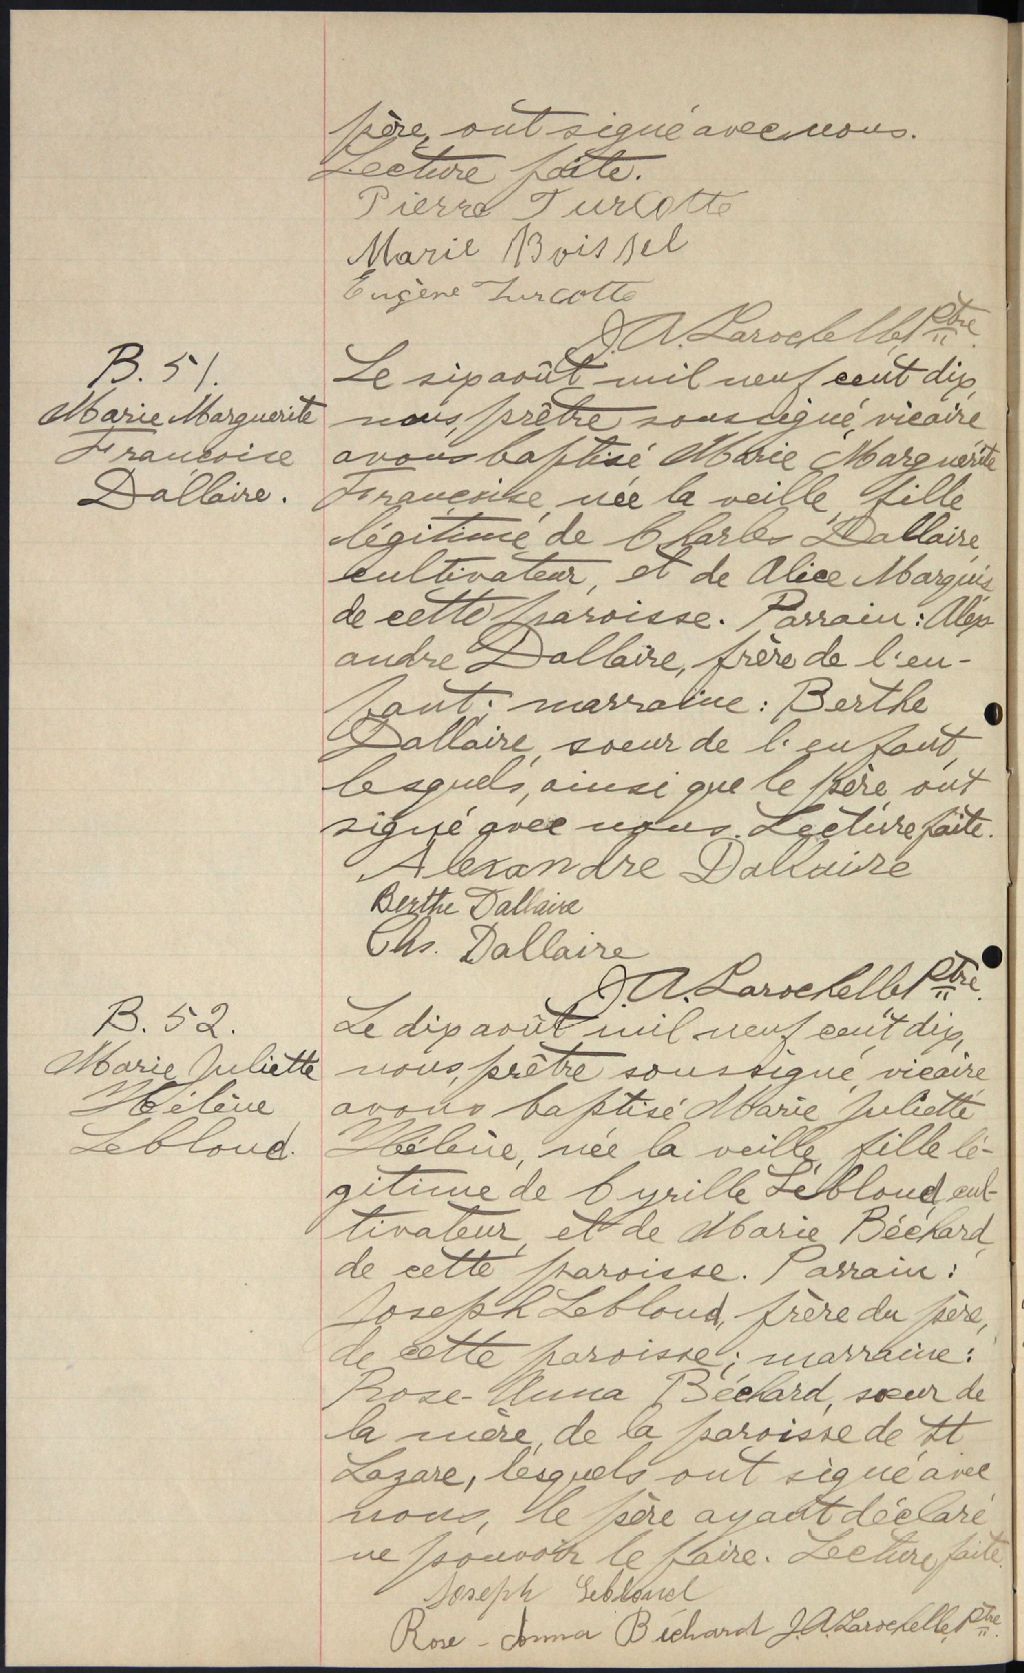 père, ont signé avec nous.
Lecture faite.
Pierre Turcotte
Marie Boissel
Eugène Turcotte
J. A. Larochelle, Ptre.
B. 51.
Marie Marguerite
Françoise
Dallaire.
Le six août mil neuf cent dix,
nous, prêtre soussigné, vicaire
avons baptisé Marie Marguerite
Françoise, née la veille, fille
légitime de Charles Dallaire,
cultivateur, et de Alice Marquis
de cette paroisse. Parrain : Alex-
andre Dallaire, frère de l'en-
fant ; marraine : Berthe
Dallaire, soeur de l'enfant,
lesquels, ainsi que le père, ont
signé avec nous. Lecture faite.
Alexandre Dallaire
Berthe Dallaire
Chs. Dallaire
J. A. Larochelle, Ptre.
B. 52.
Marie Juliette
Hélène
Leblond.
Le dix août mil neuf cent dix,
nous, prêtre soussigné, vicaire,
avons baptisé Marie Juliette
Hélène, née la veille, fille lé-
gitime de Cyrille Leblond, cul-
tivateur, et de Marie Béchard,
de cette paroisse. Parrain :
Joseph Leblond, frère du père,
de cette paroisse ; marraine :
Rose-Anna Béchard, soeur de
la mère, de la paroisse de St
Lazare, lesquels ont signé avec
nous, le père ayant déclaré
ne pouvoir le faire. Lecture faite.
Joseph Leblond
Rose-Anna Béchard J. A. Larochelle, Ptre.